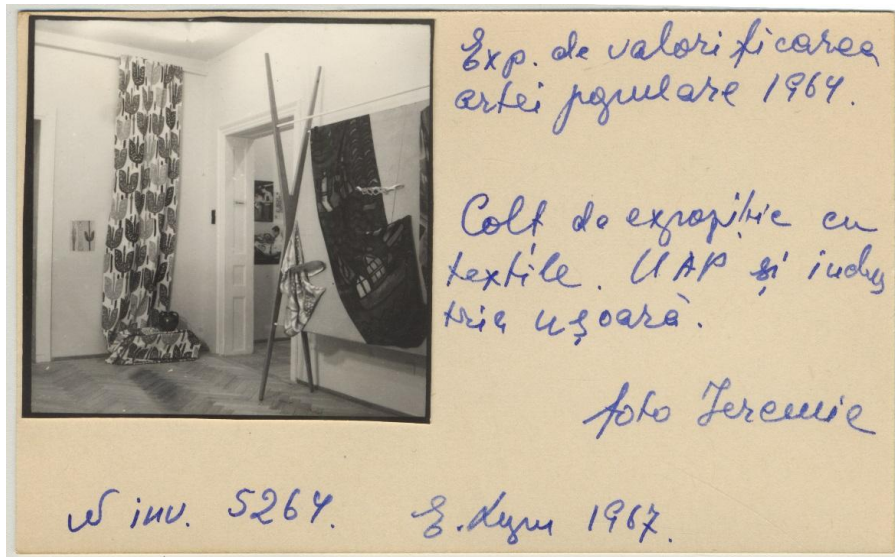 Exp. de valorificarea
artei populare 1964.
Colț de expoziție cu
textile. UAP și indus
tria ușoară.
foto Ieremie
inv. 5264.
E. 1967.